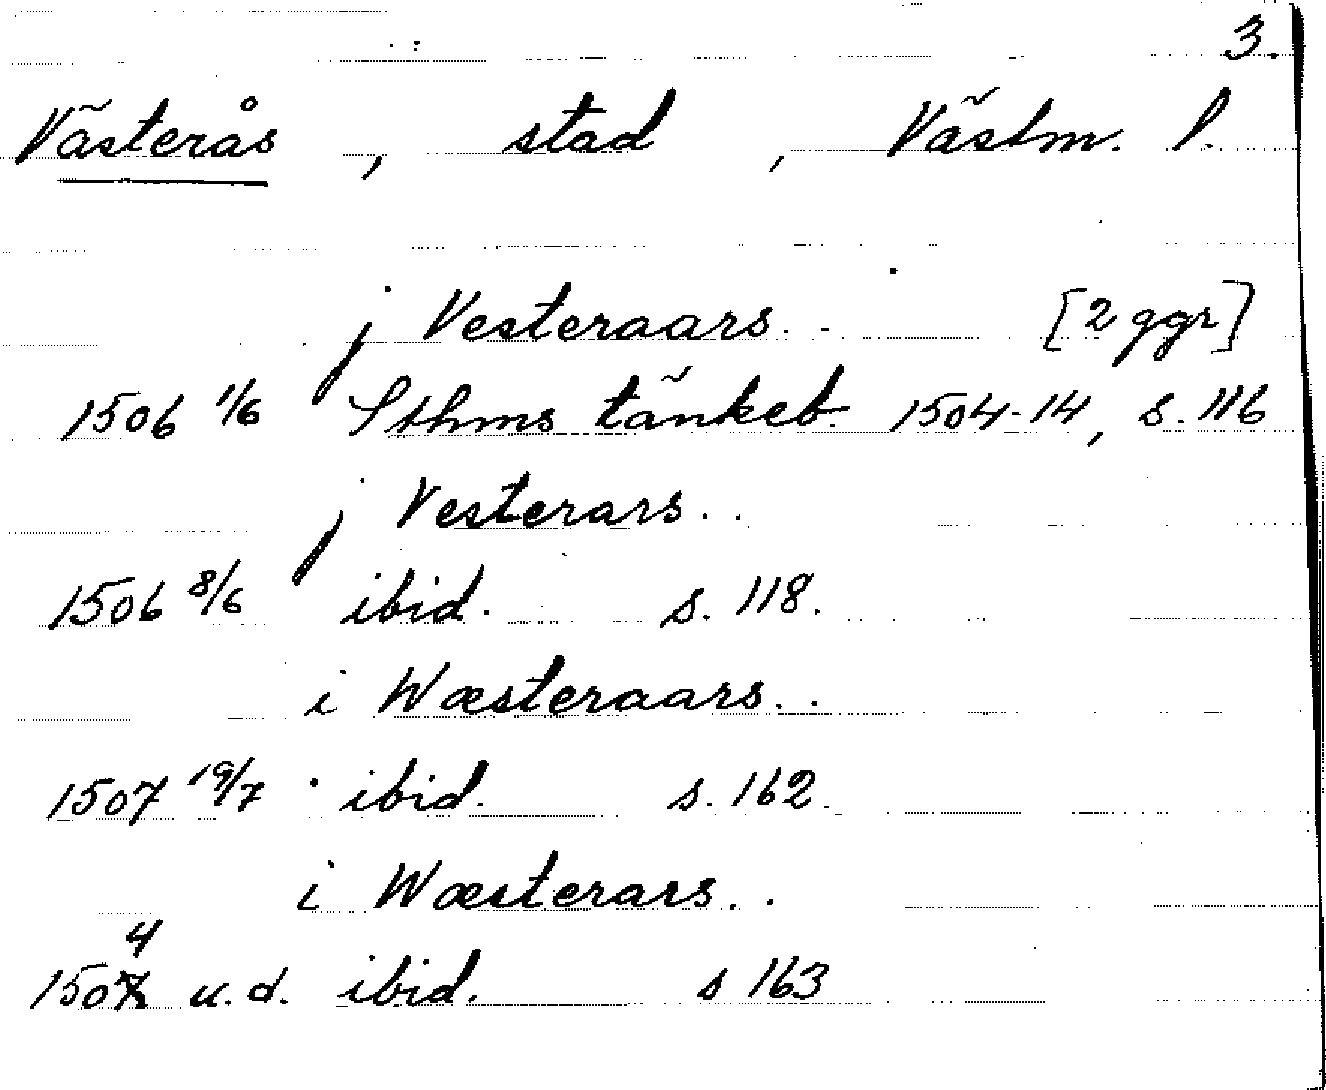 3.
Västerås, stad, Västm. l.
j Vesteraars.. [2 ggr]
1506 1/6 Sthms tänkeb. 1504-14, s. 116
j Vesterars..
1506 8/6 ibid. s. 118.
i Wæsteraars..
1507 19/7 ibid. s. 162.
i Wæsterars..
4
1507 u.d. ibid. s 163